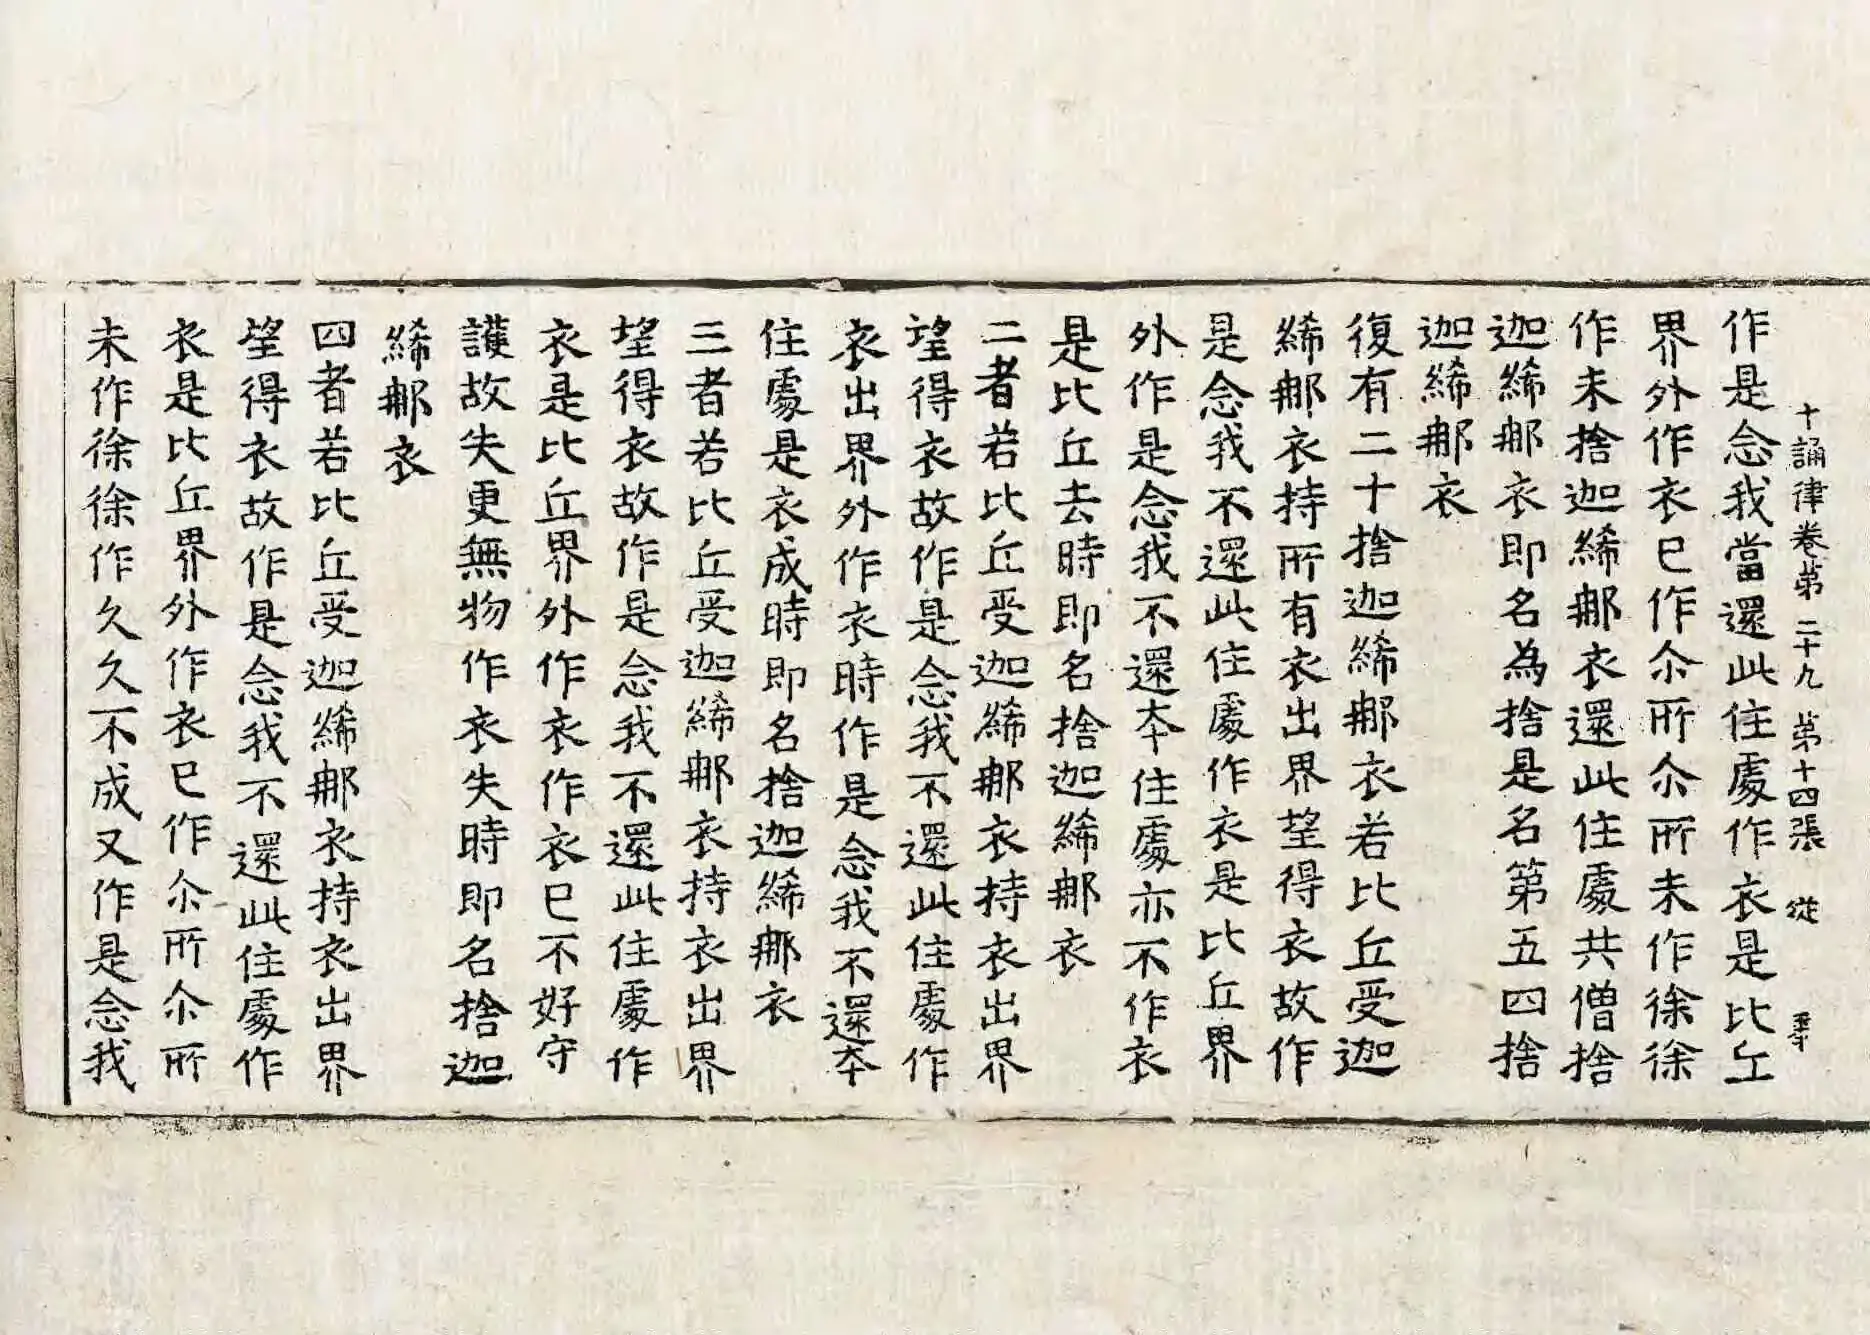 十誦律卷第二十九 第十四張 從
作是念我當還此住處作衣是比丘
界外作衣已作尒所尒所未作徐徐
作未捨迦絺那衣還此住處共僧捨
迦絺那衣即名為捨是名第五四捨
迦絺那衣
復有二十捨迦絺那衣若比丘受迦
絺那衣持所有衣出界望得衣故作
是念我不還此住處作衣是比丘界
外作是念我不還本住處亦不作衣
是比丘去時即名捨迦絺那衣
二者若比丘受迦絺那衣持衣出界
望得衣故作是念我不還此住處作
衣出界外作衣時作是念我不還本
住處是衣成時即名捨迦絺那衣
三者若比丘受迦絺那衣持衣出界
望得衣故作是念我不還此住處作
衣是比丘界外作衣作衣已不好守
護故失更無物作衣失時即名捨迦
絺那衣
四者若比丘受迦絺那衣持衣出界
望得衣故作是念我不還此住處作
衣是比丘界外作衣已作尒所尒所
未作徐徐作久久不成又作是念我